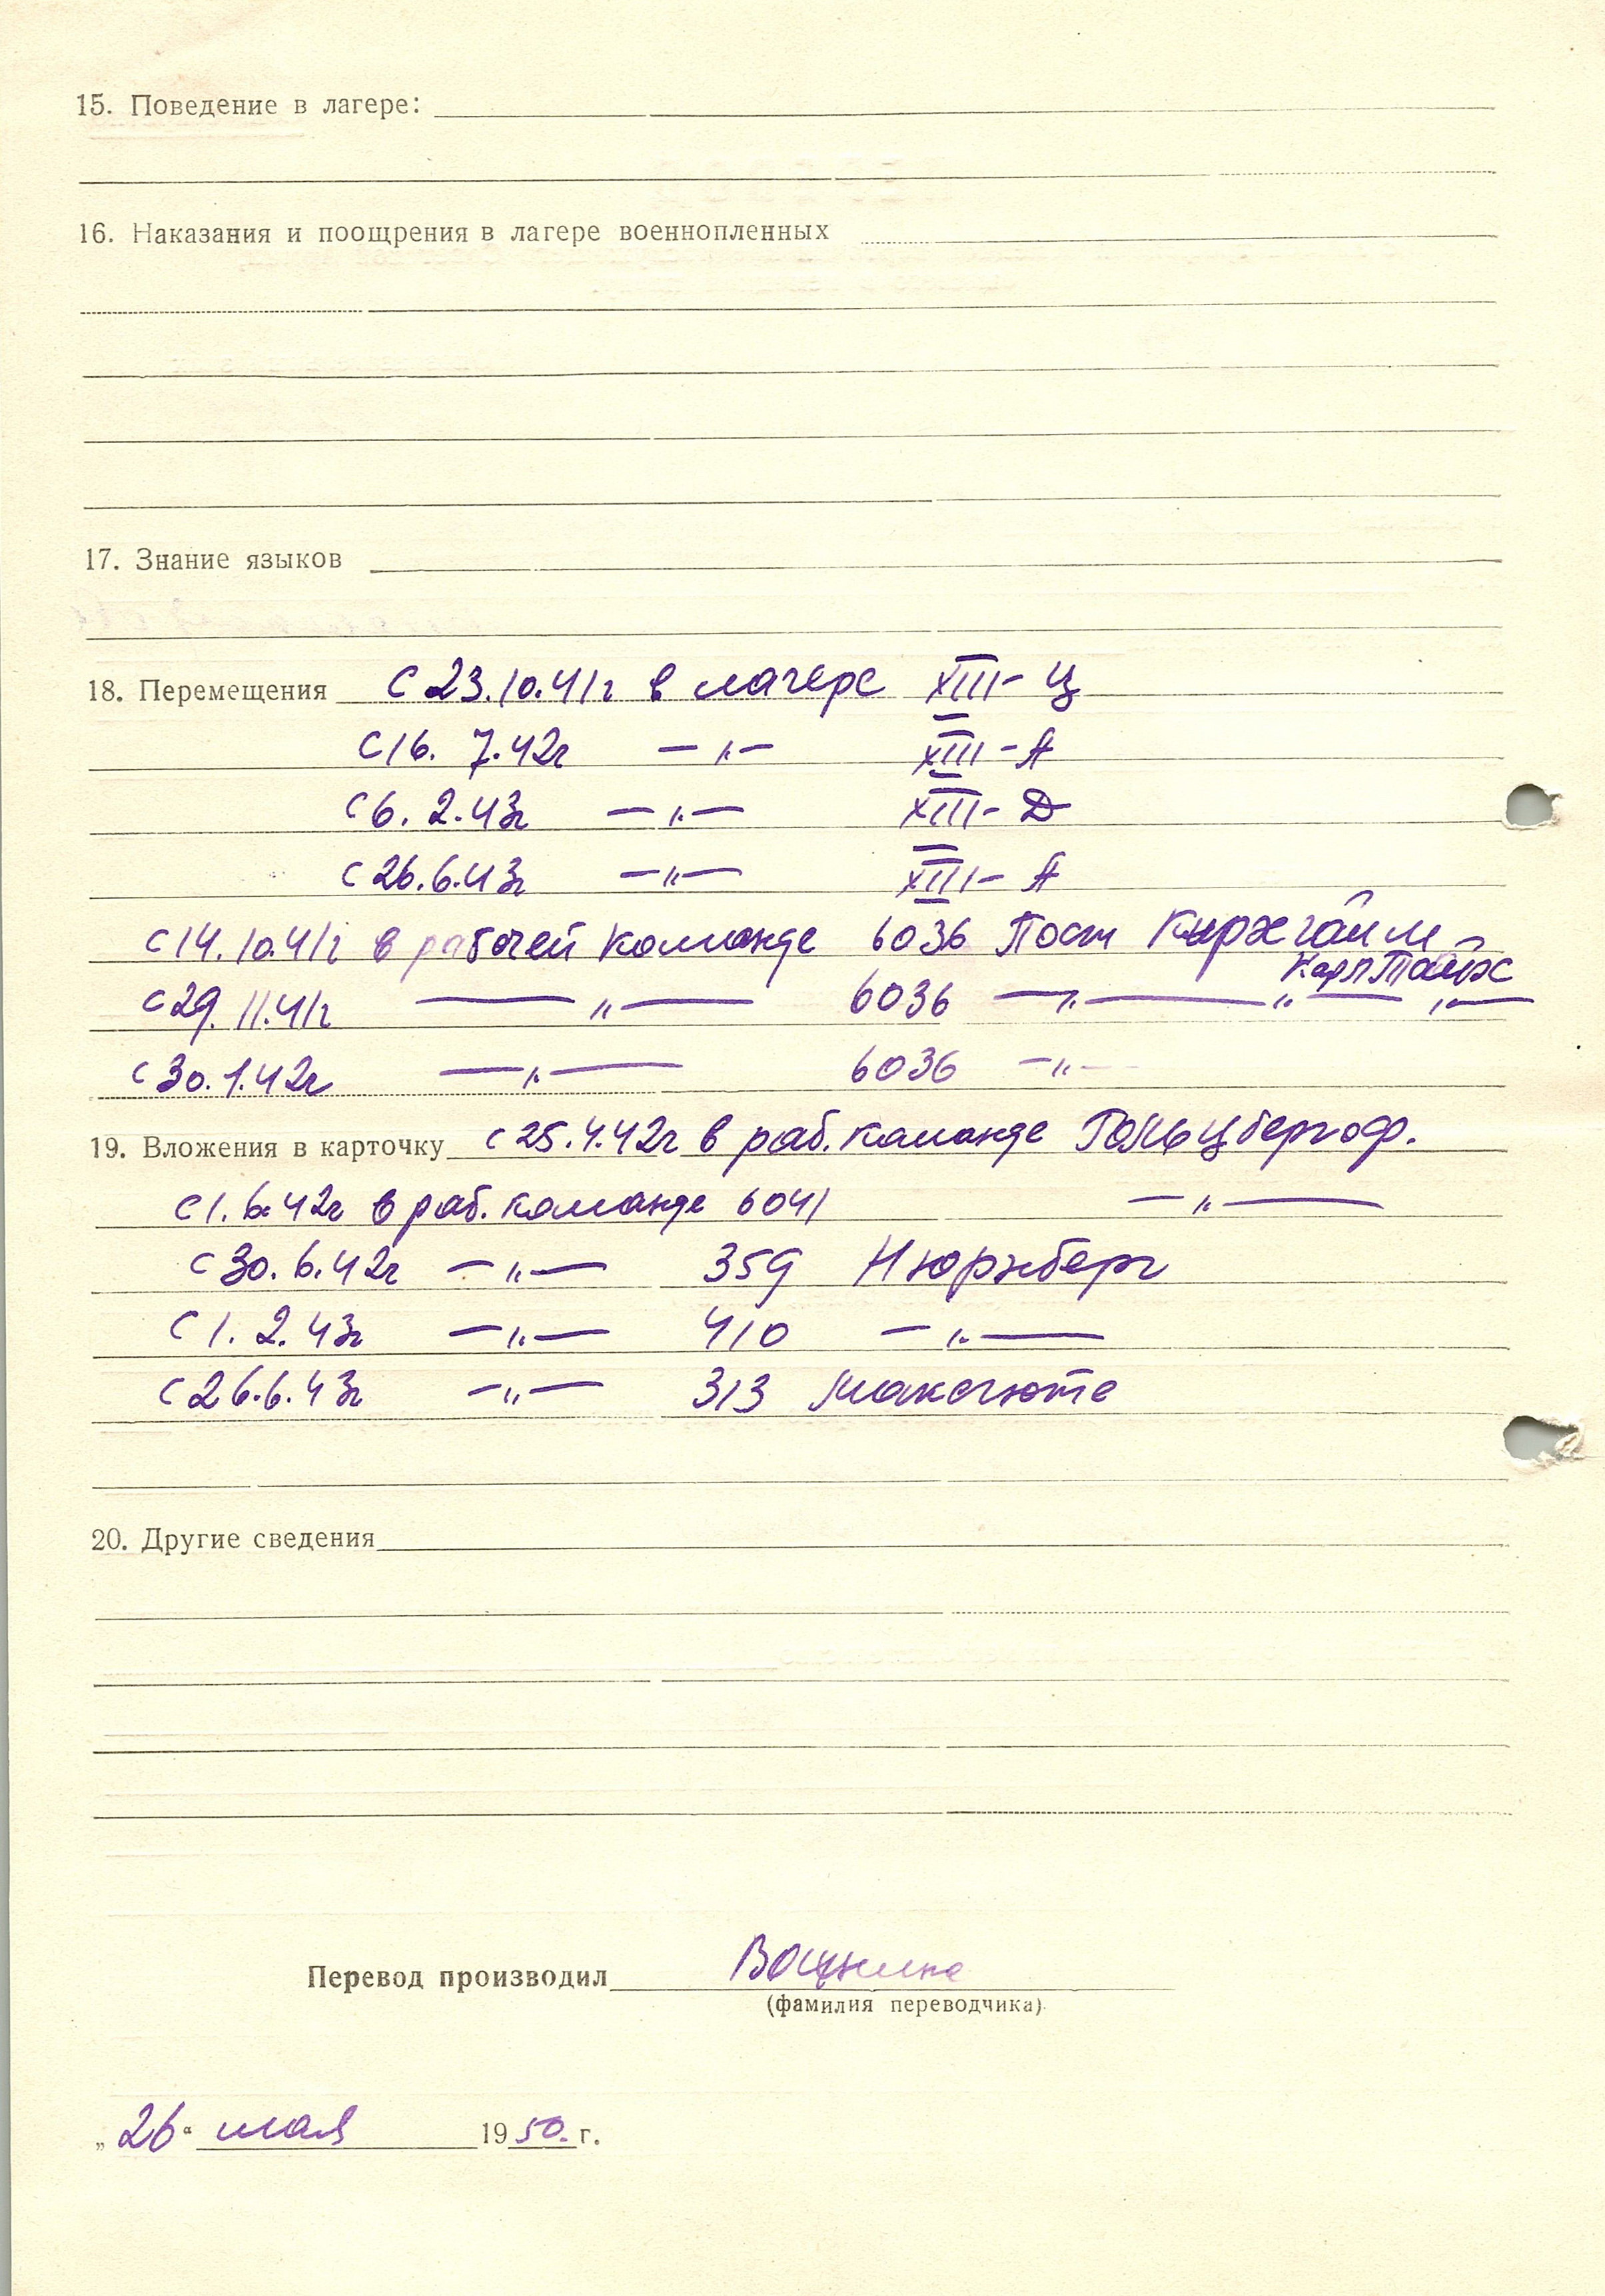 15. Поведение в лагере:
16. Наказания и поощрения в лагере военнопленных
17. Знание языков
18. Перемещения с 23.10.41г в лагере XIII-Ц
с 16. 7.42г —"— XIII-А
с 6. 2.43г —"— XIII-D
с 26.6.43г —"— XIII-А
с 14.10.41г в рабочей команде 6036 Пост Кирхгайм
Карлштайн
с 29.11.41г —"— 6036 —"— "— "—
с 30.1.42г —"— 6036 —"—
19. Вложения в карточку с 25.4.42г в раб. команде Гольцбергоф.
с 1.6.42г в раб. команде 6041 —"—
с 30.6.42г —"— 359 Нюрнберг
с 1. 2. 43г —"— 410 —"—
с 26.6.43г —"— 313 Максгютте
20. Другие сведения
Перевод производил
(фамилия переводчика)
„26“ мая 1950. г.